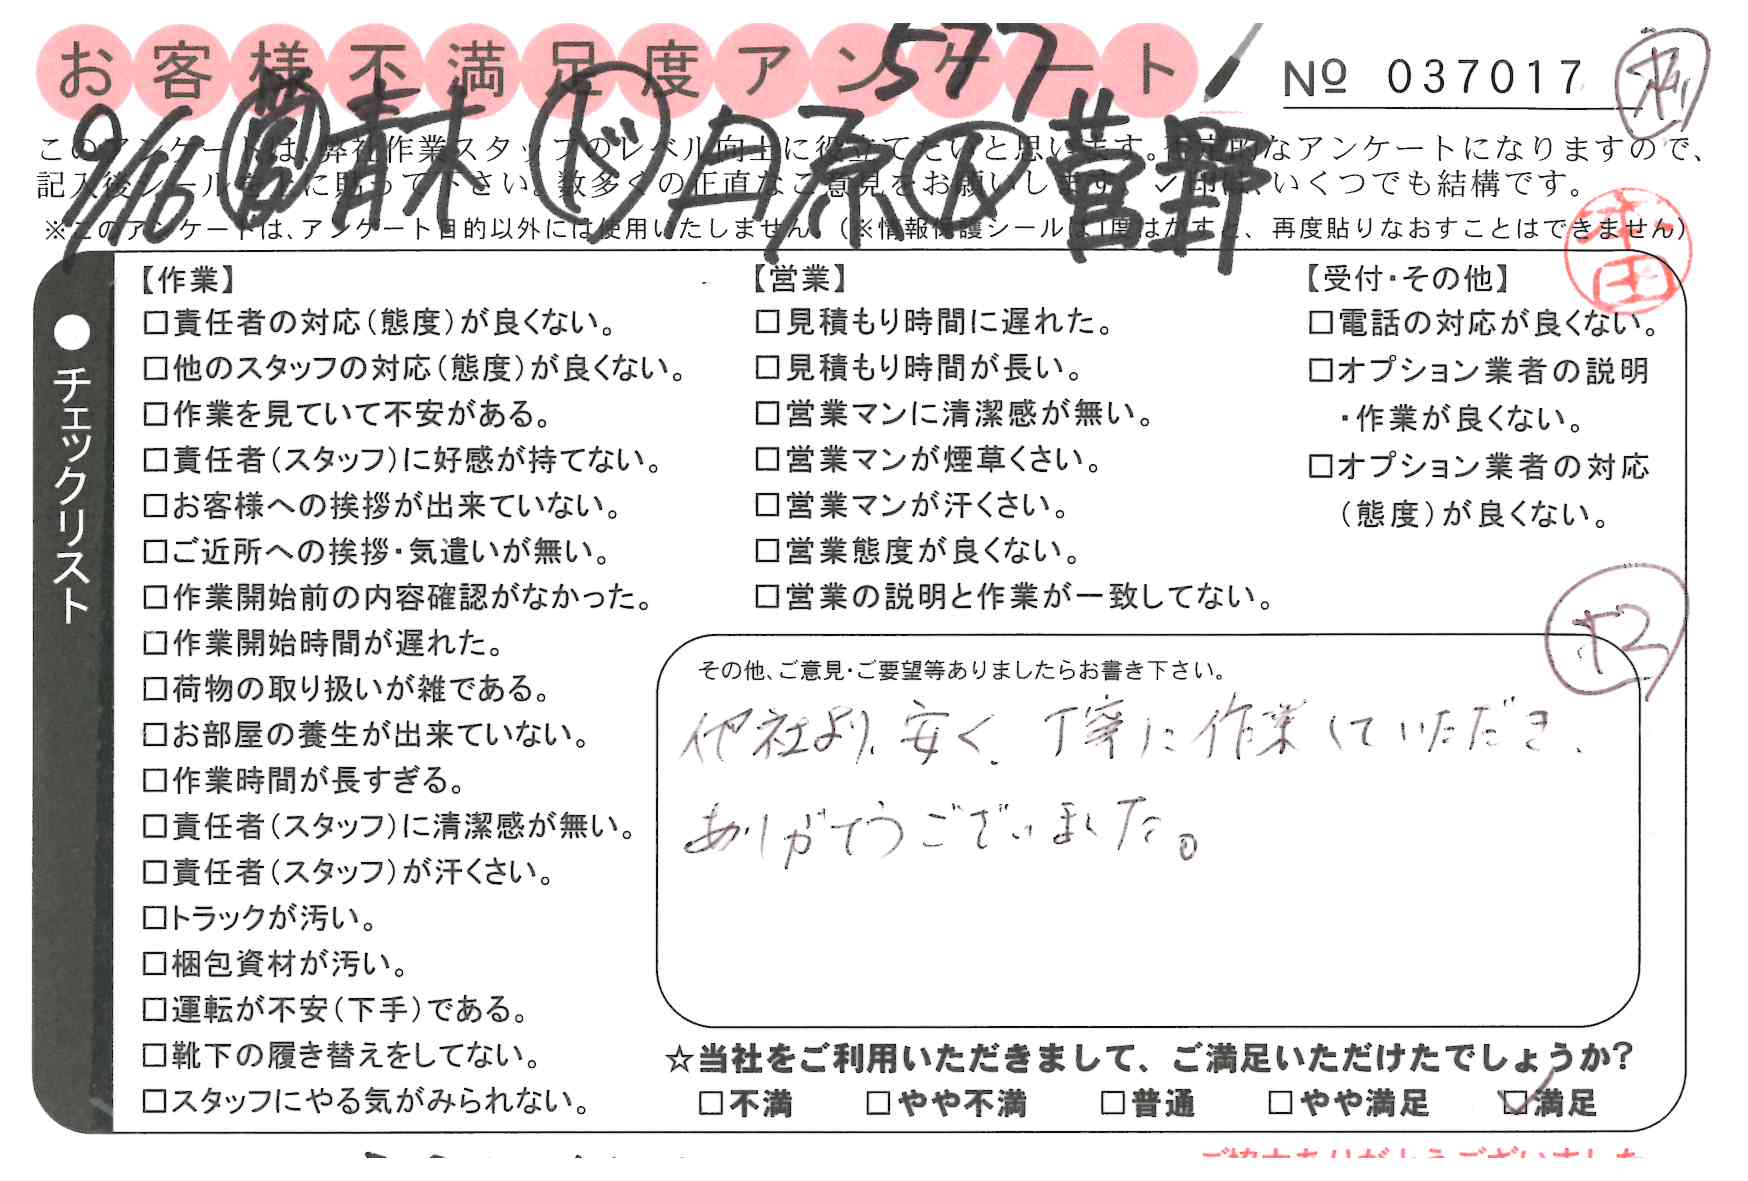 お客様不満足度アンケート
577
NO 037017
9/16 営 青木 ド 白原 菅野
このアンケートは、弊社作業スタッフのレベル向上に役立てたいと思います。なアンケートになりますので、
記入後シールを上に貼って下さい。数多くの正直なご意見をお願いします。✓印は、いくつでも結構です。
※このアンケートは、アンケート目的以外には使用いたしません。(※情報保護シールは1度はがすと、再度貼りなおすことはできません)
本田
●チェックリスト
【作業】
□責任者の対応(態度)が良くない。
□他のスタッフの対応(態度)が良くない。
□作業を見ていて不安がある。
□責任者(スタッフ)に好感が持てない。
□お客様への挨拶が出来ていない。
□ご近所への挨拶・気遣いが無い。
□作業開始前の内容確認がなかった。
□作業開始時間が遅れた。
□荷物の取り扱いが雑である。
□お部屋の養生が出来ていない。
□作業時間が長すぎる。
□責任者(スタッフ)に清潔感が無い。
□責任者(スタッフ)が汗くさい。
□トラックが汚い。
□梱包資材が汚い。
□運転が不安(下手)である。
□靴下の履き替えをしてない。
□スタッフにやる気がみられない。
【営業】
□見積もり時間に遅れた。
□見積もり時間が長い。
□営業マンに清潔感が無い。
□営業マンが煙草くさい。
□営業マンが汗くさい。
□営業態度が良くない。
□営業の説明と作業が一致してない。
【受付・その他】
□電話の対応が良くない。
□オプション業者の説明
・作業が良くない。
□オプション業者の対応
(態度)が良くない。
その他、ご意見・ご要望等ありましたらお書き下さい。
他社より、安く、丁寧に作業していただき、
ありがとうございました。
☆当社をご利用いただきまして、ご満足いただけたでしょうか?
□不満 □やや不満 □普通 □やや満足 ☑満足
ご協力ありがとうございました